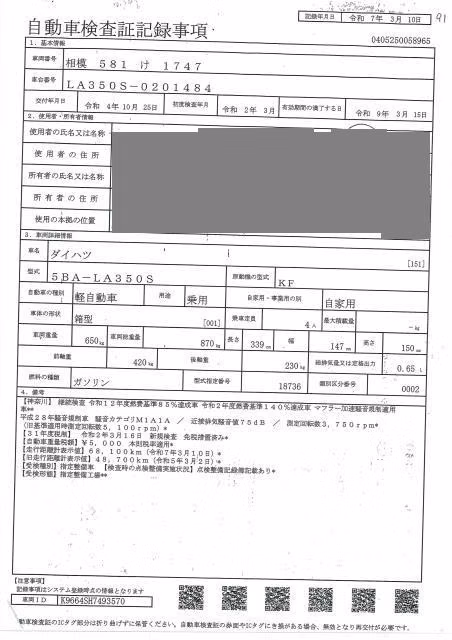 91
自動車検査証記録事項
記録年月日 令和 7年 3月 10日
0405250058965
1. 基本情報
車両番号 相模 581 け 1747
車台番号 LA350S-0201484
交付年月日 令和 4年10月25日 初度検査年月 令和 2年 3月 有効期間の満了する日 令和 9年 3月 15日
2. 使用者・所有者情報
使用者の氏名又は名称
使用者の住所
所有者の氏名又は名称
所有者の住所
使用の本拠の位置
3. 車両詳細情報
車名 ダイハツ [151]
型式 5BA-LA350S 原動機の型式 KF
自動車の種別 軽自動車 用途 乗用 自家用・事業用の別 自家用
車体の形状 箱型 [001] 乗車定員 4人 最大積載量 -kg
車両重量 650kg 車両総重量 870kg 長さ 339cm 幅 147cm 高さ 150cm
前軸重 420kg 後軸重 230kg 総排気量又は定格出力 0.65 L
燃料の種類 ガソリン 型式指定番号 18736 類別区分番号 0002
4. 備考
【神奈川】 継続検査 令和12年度燃費基準85%達成車 令和2年度燃費基準140%達成車 マフラー加速騒音規制適用
車**
平成28年騒音規制車 騒音カテゴリM1A1A / 近接排気騒音値75dB / 測定回転数3,750rpm*
(旧基準適用時測定回転数5,100rpm)*
【31年度税制】 令和2年3月16日 新規検査 免税措置済み*
【自動車重量税額】¥5,000 本則税率適用*
【走行距離計表示値】68,100km(令和7年3月10日)*
【旧走行距離計表示値】48,700km(令和5年3月2日)*
【受検種別】指定整備車 【検査時の点検整備実施状況】点検整備記録簿記載あり*
【受検形態】指定整備工場**
【注意事項】
記録事項はシステム登録時点の情報となります
車両ID K9664SH7493570
自動車検査証のICタグ部分は折り曲げずに保管ください。自動車検査証の券面やICタグにき損がある場合、無効となり再交付が必要です。